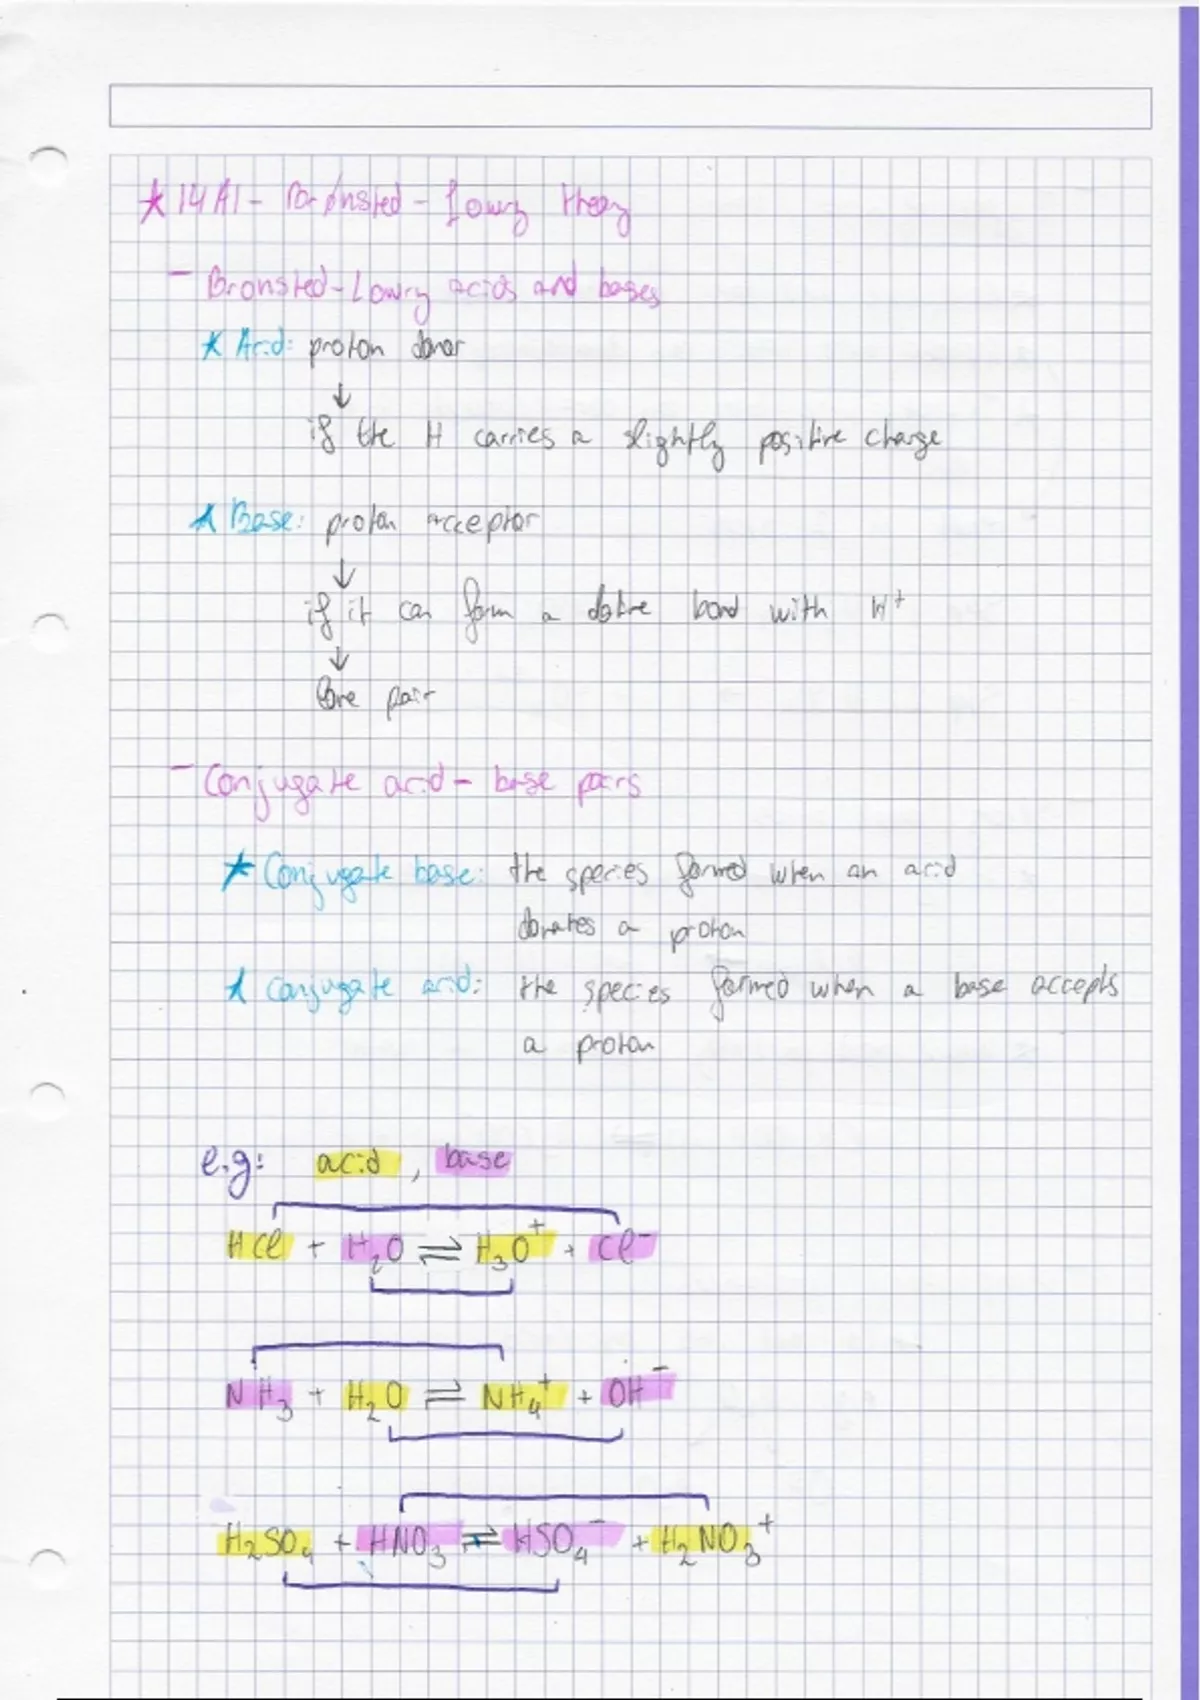 * 14A1 - Brønsted-Lowry theory
- Bronsted-Lowry acids and bases
* Acid: proton donor
↓
if the H carries a slightly positive charge
* Base: proton acceptor
↓
if it can form a dative bond with H⁺
↓
lone pair
- Conjugate acid-base pairs
* Conjugate base: the species formed when an acid
donates a proton
* conjugate acid: the species formed when a base accepts
a proton
e.g: acid, base
HCl + H₂O ⇌ H₃O⁺ + Cl⁻
NH₃ + H₂O ⇌ NH₄⁺ + OH⁻
H₂SO₄ + HNO₃ ⇌ HSO₄⁻ + H₂NO₃⁺